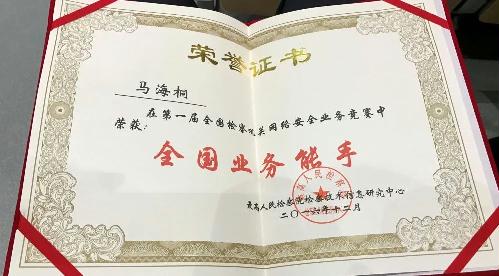 荣誉证书
马海桐
在第一届全国检察机关网络安全业务竞赛中
荣获：
全国业务能手
最高人民检察院检察技术信息研究中心
二〇一六年十二月